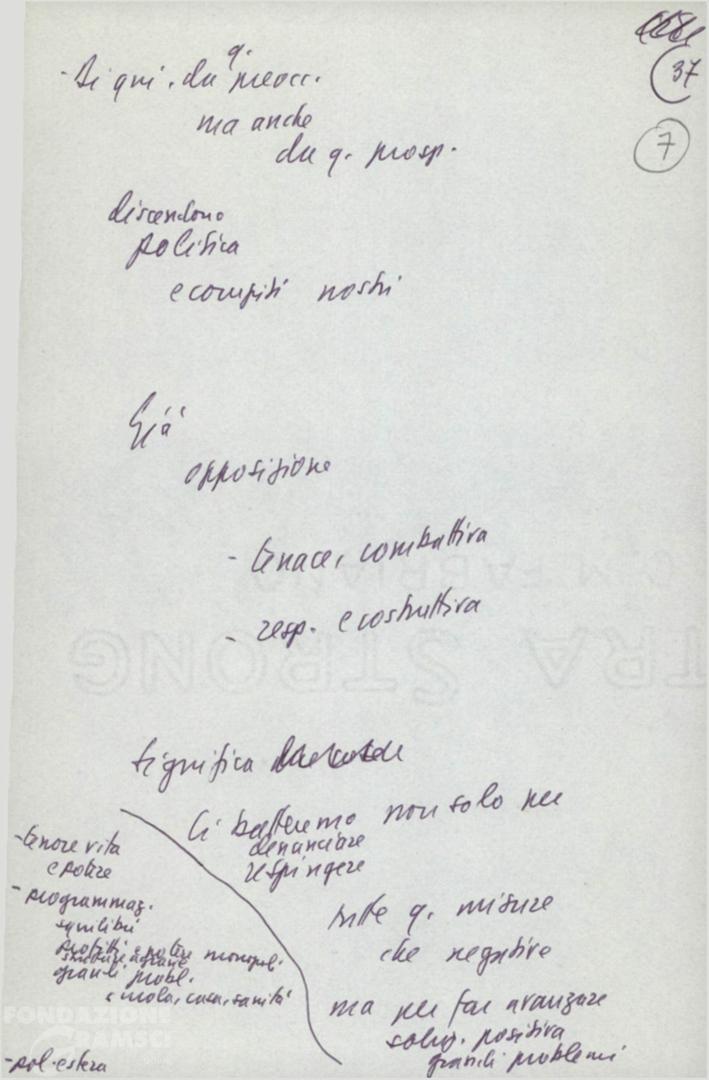 37
7
- Di qui, da q. preocc.
ma anche
da q. prosp.
discendono
politica
e compiti nostri
Già
opposizione
- tenace, combattiva
- resp. e costruttiva
Significa
Ci batteremo non solo per
denunciare
respingere
tutte q. misure
che negative
ma per far avanzare
soluz. positiva
grandi problemi
- tenore vita
e potere
- programmaz.
squilibri
profitti e potere monopoli
strutture agrarie
grandi probl.
scuola, casa, sanità
- pol. estera
FONDAZIONE
GRAMSCI
C.M FABRIANO
TRA STRONG